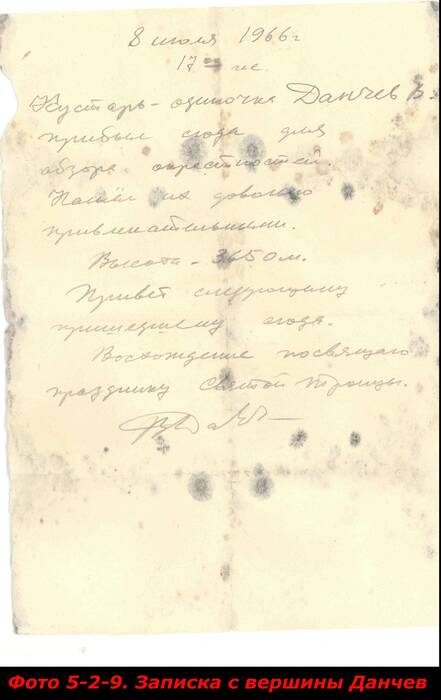 8 июля 1966 г
17 00 час.
Кустарь-одиночка Данчев В.
прибыл сюда для
обзора окрестностей.
Нашёл их довольно
привлекательными.
Высота - 3650 м.
Привет следующему
пришедшему сюда.
Восхождение посвящаю
празднику Святой Троицы.
Фото 5-2-9. Записка с вершины Данчев